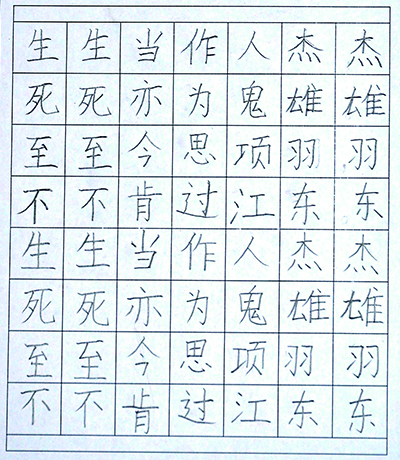 生生当作人杰杰
死死亦为鬼雄雄
至至今思项羽羽
不不肯过江东东
生生当作人杰杰
死死亦为鬼雄雄
至至今思项羽羽
不不肯过江东东